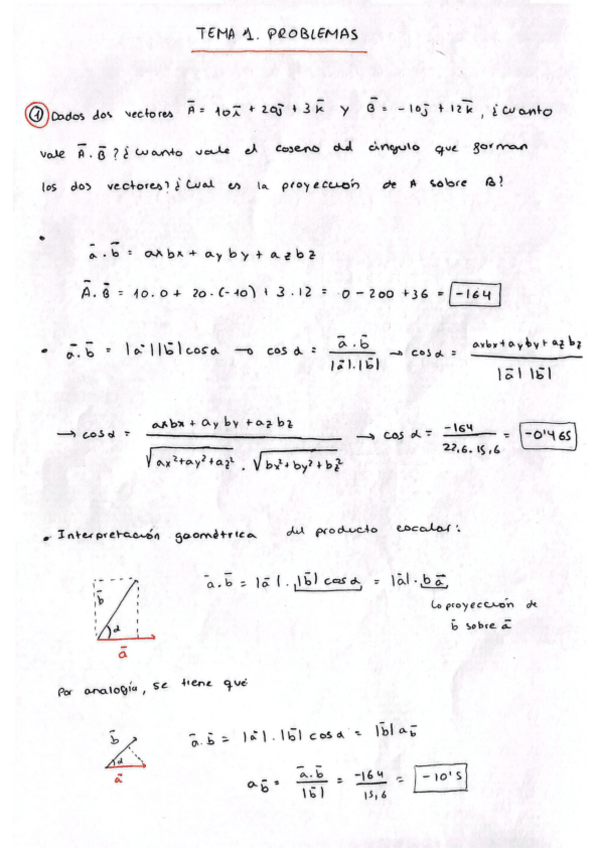 TEMA 1. PROBLEMAS
① Dados dos vectores A̅ = 10i̅ + 20j̅ + 3k̅ y B̅ = -10j̅ + 12k̅, ¿cuanto
vale A̅·B̅? ¿cuanto vale el coseno del ángulo que forman
los dos vectores? ¿cual es la proyección de A sobre B?
• a̅·b̅ = axbx + ayby + azbz
A̅·B̅ = 10·0 + 20·(-10) + 3·12 = 0 - 200 + 36 = -164
• a̅·b̅ = |a̅||b̅|cosα → cosα = a̅·b̅ / |a̅|·|b̅| → cosα = axbx + ayby + azbz / |a̅| |b̅|
→ cosα = axbx + ayby + azbz / √ax²+ay²+az² · √bx²+by²+bz² → cosα = -164 / 22,6·15,6 = -0'465
• Interpretación geométrica del producto escalar:
b̅
α
a̅
a̅·b̅ = |a̅|·|b̅|cosα = |a̅|·b a̅
↳ proyección de
b̅ sobre a̅
Por analogía, se tiene que
b̅
α
a̅
a̅·b̅ = |a̅|·|b̅|cosα = |b̅| a b̅
a b̅ = a̅·b̅ / |b̅| = -164 / 15,6 = -10'5